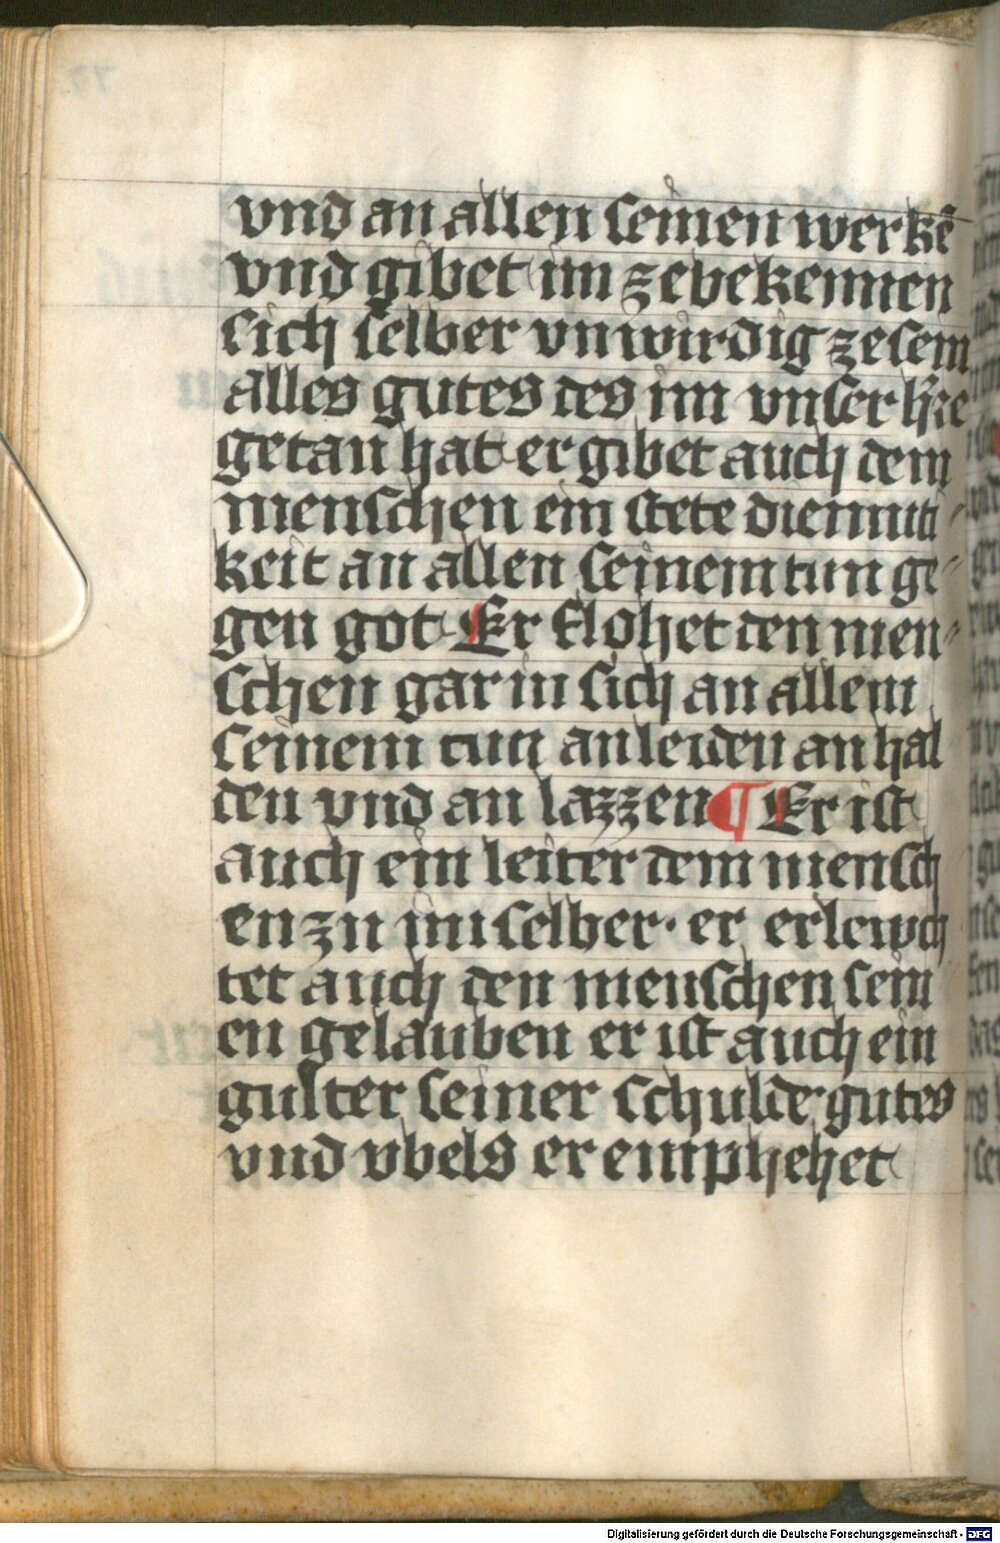 vnd an allen seinen werkē
vnd gibet im zebekennen
sich selber vnwirdig zesein
alles gutes des im vnser h̾re
getan hat er gibet auch dem
menschen ein stete diemuti
keit an allen seinem tun ge
gen got Er flohet den men
schen gar in sich an allem
seinem tun an leiden an hal
den vnd an lazzen ¶ Er ist
auch ein leiter dem mensch
en zu im selber · er erlewch
tet auch den menschen sein
en gelauben er ist auch ein
gulter seiner schulde gutes
vnd vbels er emphehet
Digitalisierung gefördert durch die Deutsche Forschungsgemeinschaft - DFG